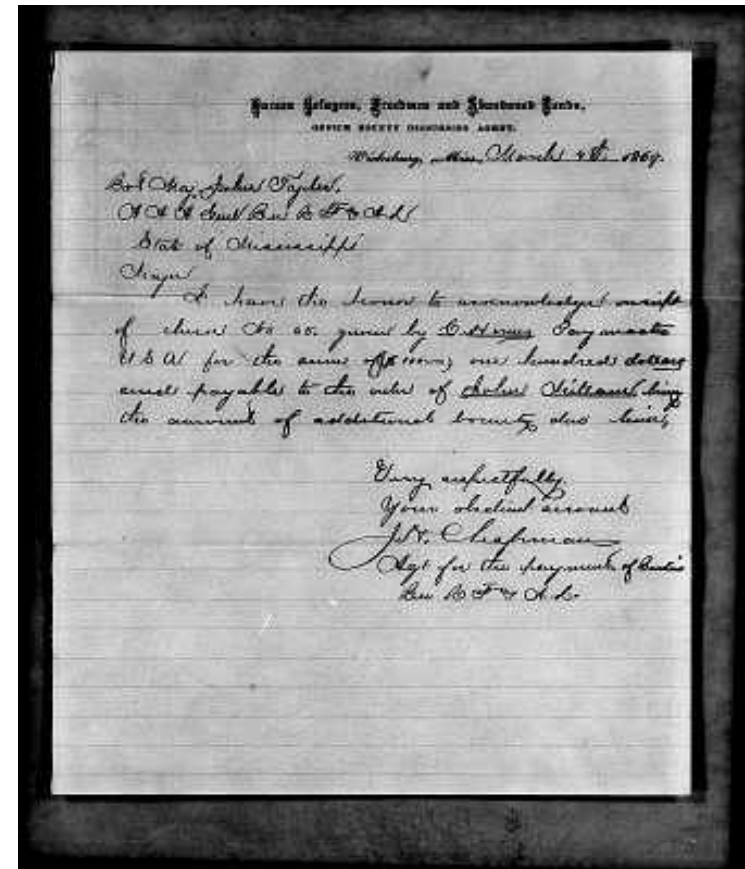 Bureau Refugees, Freedmen and Abandoned Lands,
OFFICE BOUNTY DISBURSING AGENT,
Vicksburg, Miss, March 4th 1869.
Bvt Maj John Tyler.
A A A Genl Bu R F & A L
State of Mississippi
Major
I have the honor to acknowledge receipt
of check No 60. given by Paymaster
U S A for the sum of $ one hundred dollars
and payable to the order of John being
the amount of additional bounty due him,
Very respectfully
Your obedient servant
J.N. Chapman
Agt for the payment of Bounties
Bu R F & A. L.